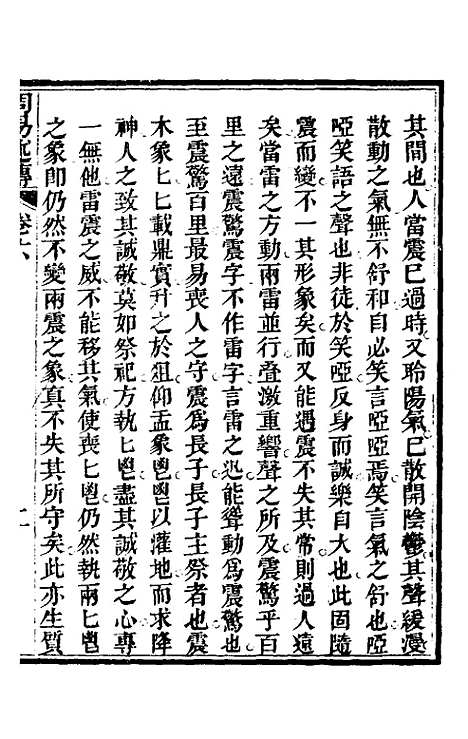 其間也人當震巳過時又聆陽氣巳散開陰鬱其聲緩漫
散動之氣無不舒和自必笑言啞啞焉笑言氣之舒也啞
啞笑語之聲也非徒於笑啞反身而誠樂自大也此固隨
震而變不一其形象矣而又能遇震不失其常則過人遠
矣當雷之方動兩雷並行聲激重響聲之所及震驚乎百
里之遠震驚震字不作雷字言雷之迅能聳動爲震驚也
至震驚百里最易喪人之守震爲長子長子主祭者也震
木象匕匕載鼎實升之於俎仰盂象鬯鬯以灌地而求降
神人之致其誠敬莫如祭祀方執匕鬯盡其誠敬之心專
一無他雷震之威不能移其氣使喪匕鬯仍然執兩匕鬯
之象卽仍然不變兩震之象真不失其所守矣此亦生質
周易
傳
卷六